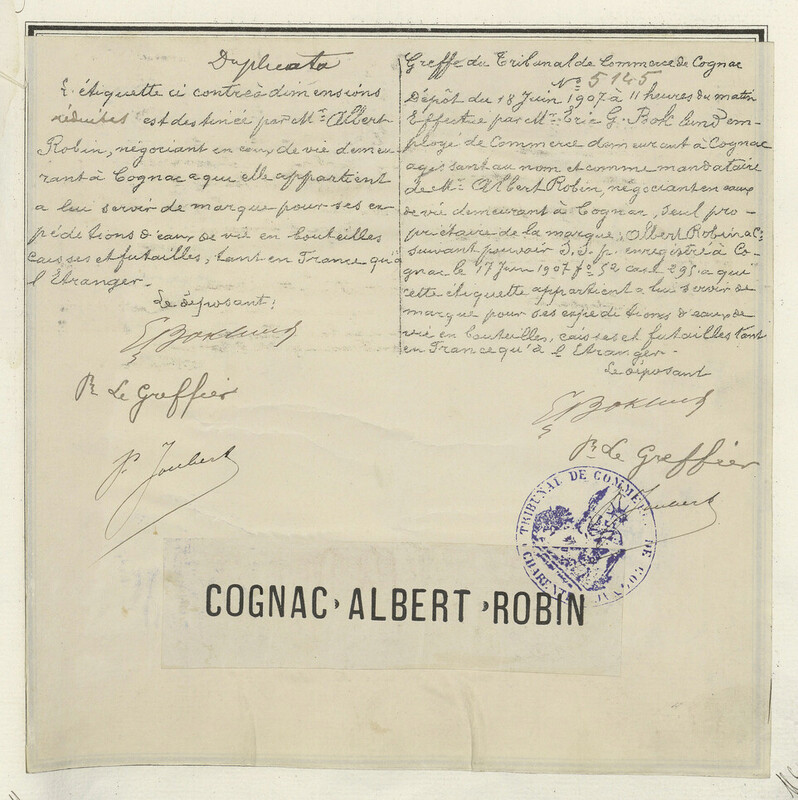 Duplicata
L'étiquette ci contre à dimensions
réduites est destinée par Mr Albert
Robin, négociant en eaux de vie demeu
rant à Cognac a qui elle appartient
a lui servir de marque pour ses ex
péditions d'eaux de vie en bouteilles
caisses et futailles, tant en France qu'à
l'Etranger.
Le déposant:
E Boklund
Pr Le Greffier
P. Joubert
Greffe du Tribunal de Commerce de Cognac
No 5145
Dépôt du 18 Juin 1907 à 11 heures du matin
Effectué par Mr Eric G. Boklund em-
ployé de Commerce demeurant à Cognac
agissant au nom et comme mandataire
de Mr Albert Robin, négociant en eaux
de vie demeurant à Cognac, seul pro-
priétaire de la marque, Albert Robin & Cie
suivant pouvoir S.S.p. enregistré à Co-
gnac le 17 Juin 1907 fo 52 case 295. a qui
cette étiquette appartient a lui servir de
marque pour ses expéditions d'eaux de
vie en bouteilles, caisses et futailles tant
en France qu'à l'Etranger.
Le déposant
E Boklund
Pr Le Greffier
Joubert
TRIBUNAL DE COMMERCE DE COGNAC
CHARENTE
COGNAC › ALBERT › ROBIN